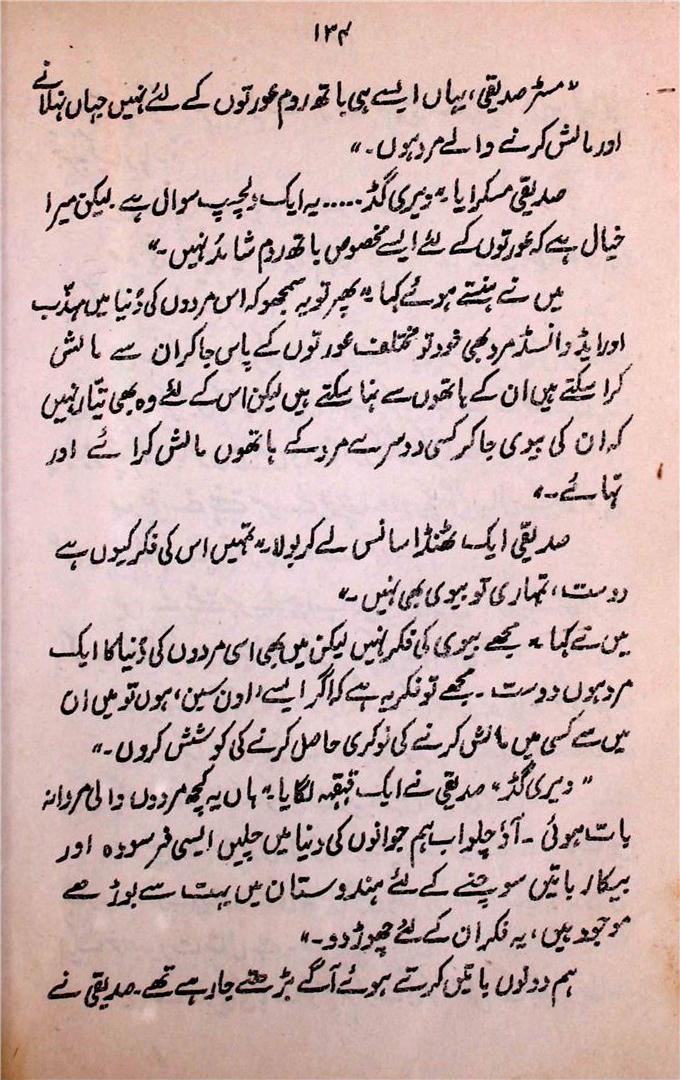 ۱۳۴
"مسٹر صدیقی، یہاں ایسے ہی باتھ روم عورتوں کے لئے نہیں جہاں نہلانے
اور مالش کرنے والے مرد ہوں۔"
صدیقی مسکرایا "ویری گڈ..... یہ ایک دلچسپ سوال ہے۔ لیکن میرا
خیال ہے کہ عورتوں کے لئے ایسے مخصوص باتھ روم شائد نہیں۔"
میں نے ہنستے ہوئے کہا "پھر تو یہ سمجھو کہ اس مردوں کی دُنیا میں مہذّب
اور ایڈوانسڈ مرد بھی خود تو مختلف عورتوں کے پاس جا کر ان سے مالش
کرا سکتے ہیں ان کے ہاتھوں سے نہا سکتے ہیں لیکن اس کے لئے وہ بھی تیّار نہیں
کہ ان کی بیوی جا کر کسی دوسرے مرد کے ہاتھوں مالش کرائے اور
نہائے۔"
صدیقی ایک ٹھنڈا سانس لے کر بولا۔ "تمہیں اس کی فکر کیوں ہے
دوست، تمہاری تو بیوی بھی نہیں۔"
میں نے کہا "مجھے بیوی کی فکر نہیں لیکن میں بھی اسی مردوں کی دُنیا کا ایک
مرد ہوں دوست۔ مجھے تو فکر یہ ہے کہ اگر ایسے 'اون سین' ہوں تو میں ان
میں سے کسی میں مالش کرنے کی نوکری حاصل کرنے کی کوشش کروں۔"
"ویری گڈ" صدیقی نے ایک قہقہہ لگایا۔ "ہاں یہ کچھ مردوں والی مردانہ
بات ہوئی۔ آؤ چلو اب ہم جوانوں کی دنیا میں چلیں ایسی فرسودہ اور
بیکار باتیں سوچنے کے لئے ہندوستان میں بہت سے بوڑھے
موجود ہیں، یہ فکر ان کے لئے چھوڑ دو۔"
ہم دونوں باتیں کرتے ہوئے آگے بڑھتے جا رہے تھے۔ صدیقی نے